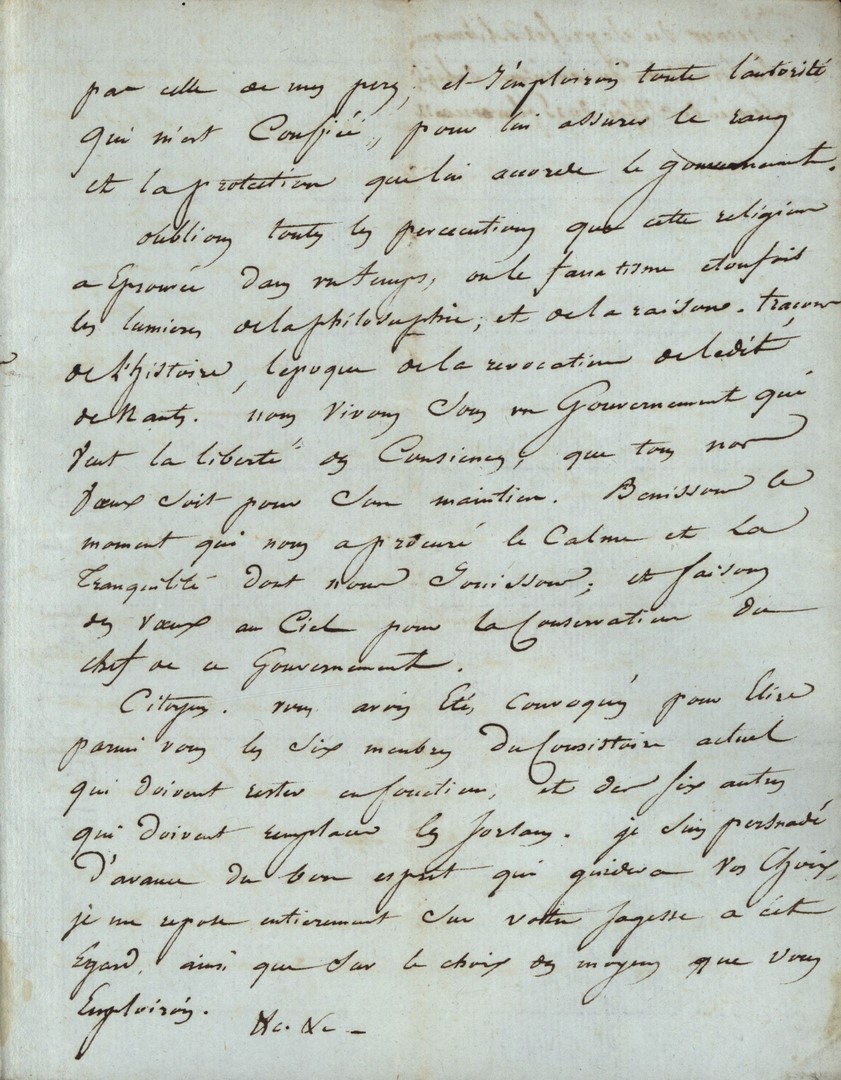 par celle de mes peres, et j'emploirois toute l'autorité
qui m'est Confiée, pour lui assurer le rang
et la protection que lui accorde le gouvernement.
oublions toutes les percecutions que cette religion
a Eprouvée dans un temps, ou le fanatisme etoufait
les lumieres de la philosophie, et de la raison. traçons
de l'histoire, l'epoque de la revocation de l'edit
de Nants. nous vivons sous un Gouvernement qui
veut la liberté des Consiences, que tous nos
vœux soit pour son maintien. Benissons le
moment qui nous a procuré le Calme et la
tranquilité dont nous Jouissons; et faisons
des vœux au Ciel pour la Conservation du
chef de ce Gouvernement.
Citoyens. vous avois Eté, convoqués pour Elire
parmi vous les six membres du Consistoire actuel
qui doivent rester en fonction, et des six autres
qui doivent remplacer les sortans. je suis persuadé
d'avance du bon esprit qui guidera vos Choix,
je me repose entierement sur votre sagesse a cet
Egard, ainsi que sur le choix des moyens que vous
Emploirés.
&c. &c. –